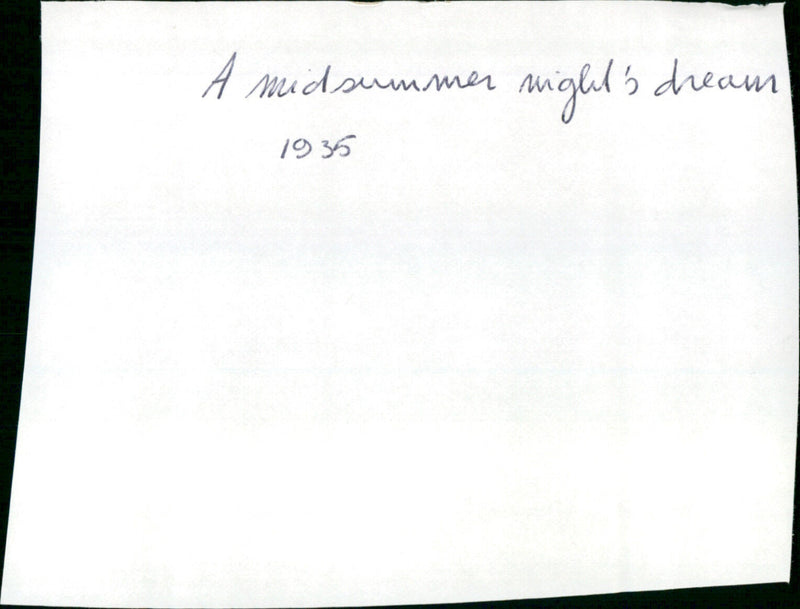 A midsummer night's dream
1935